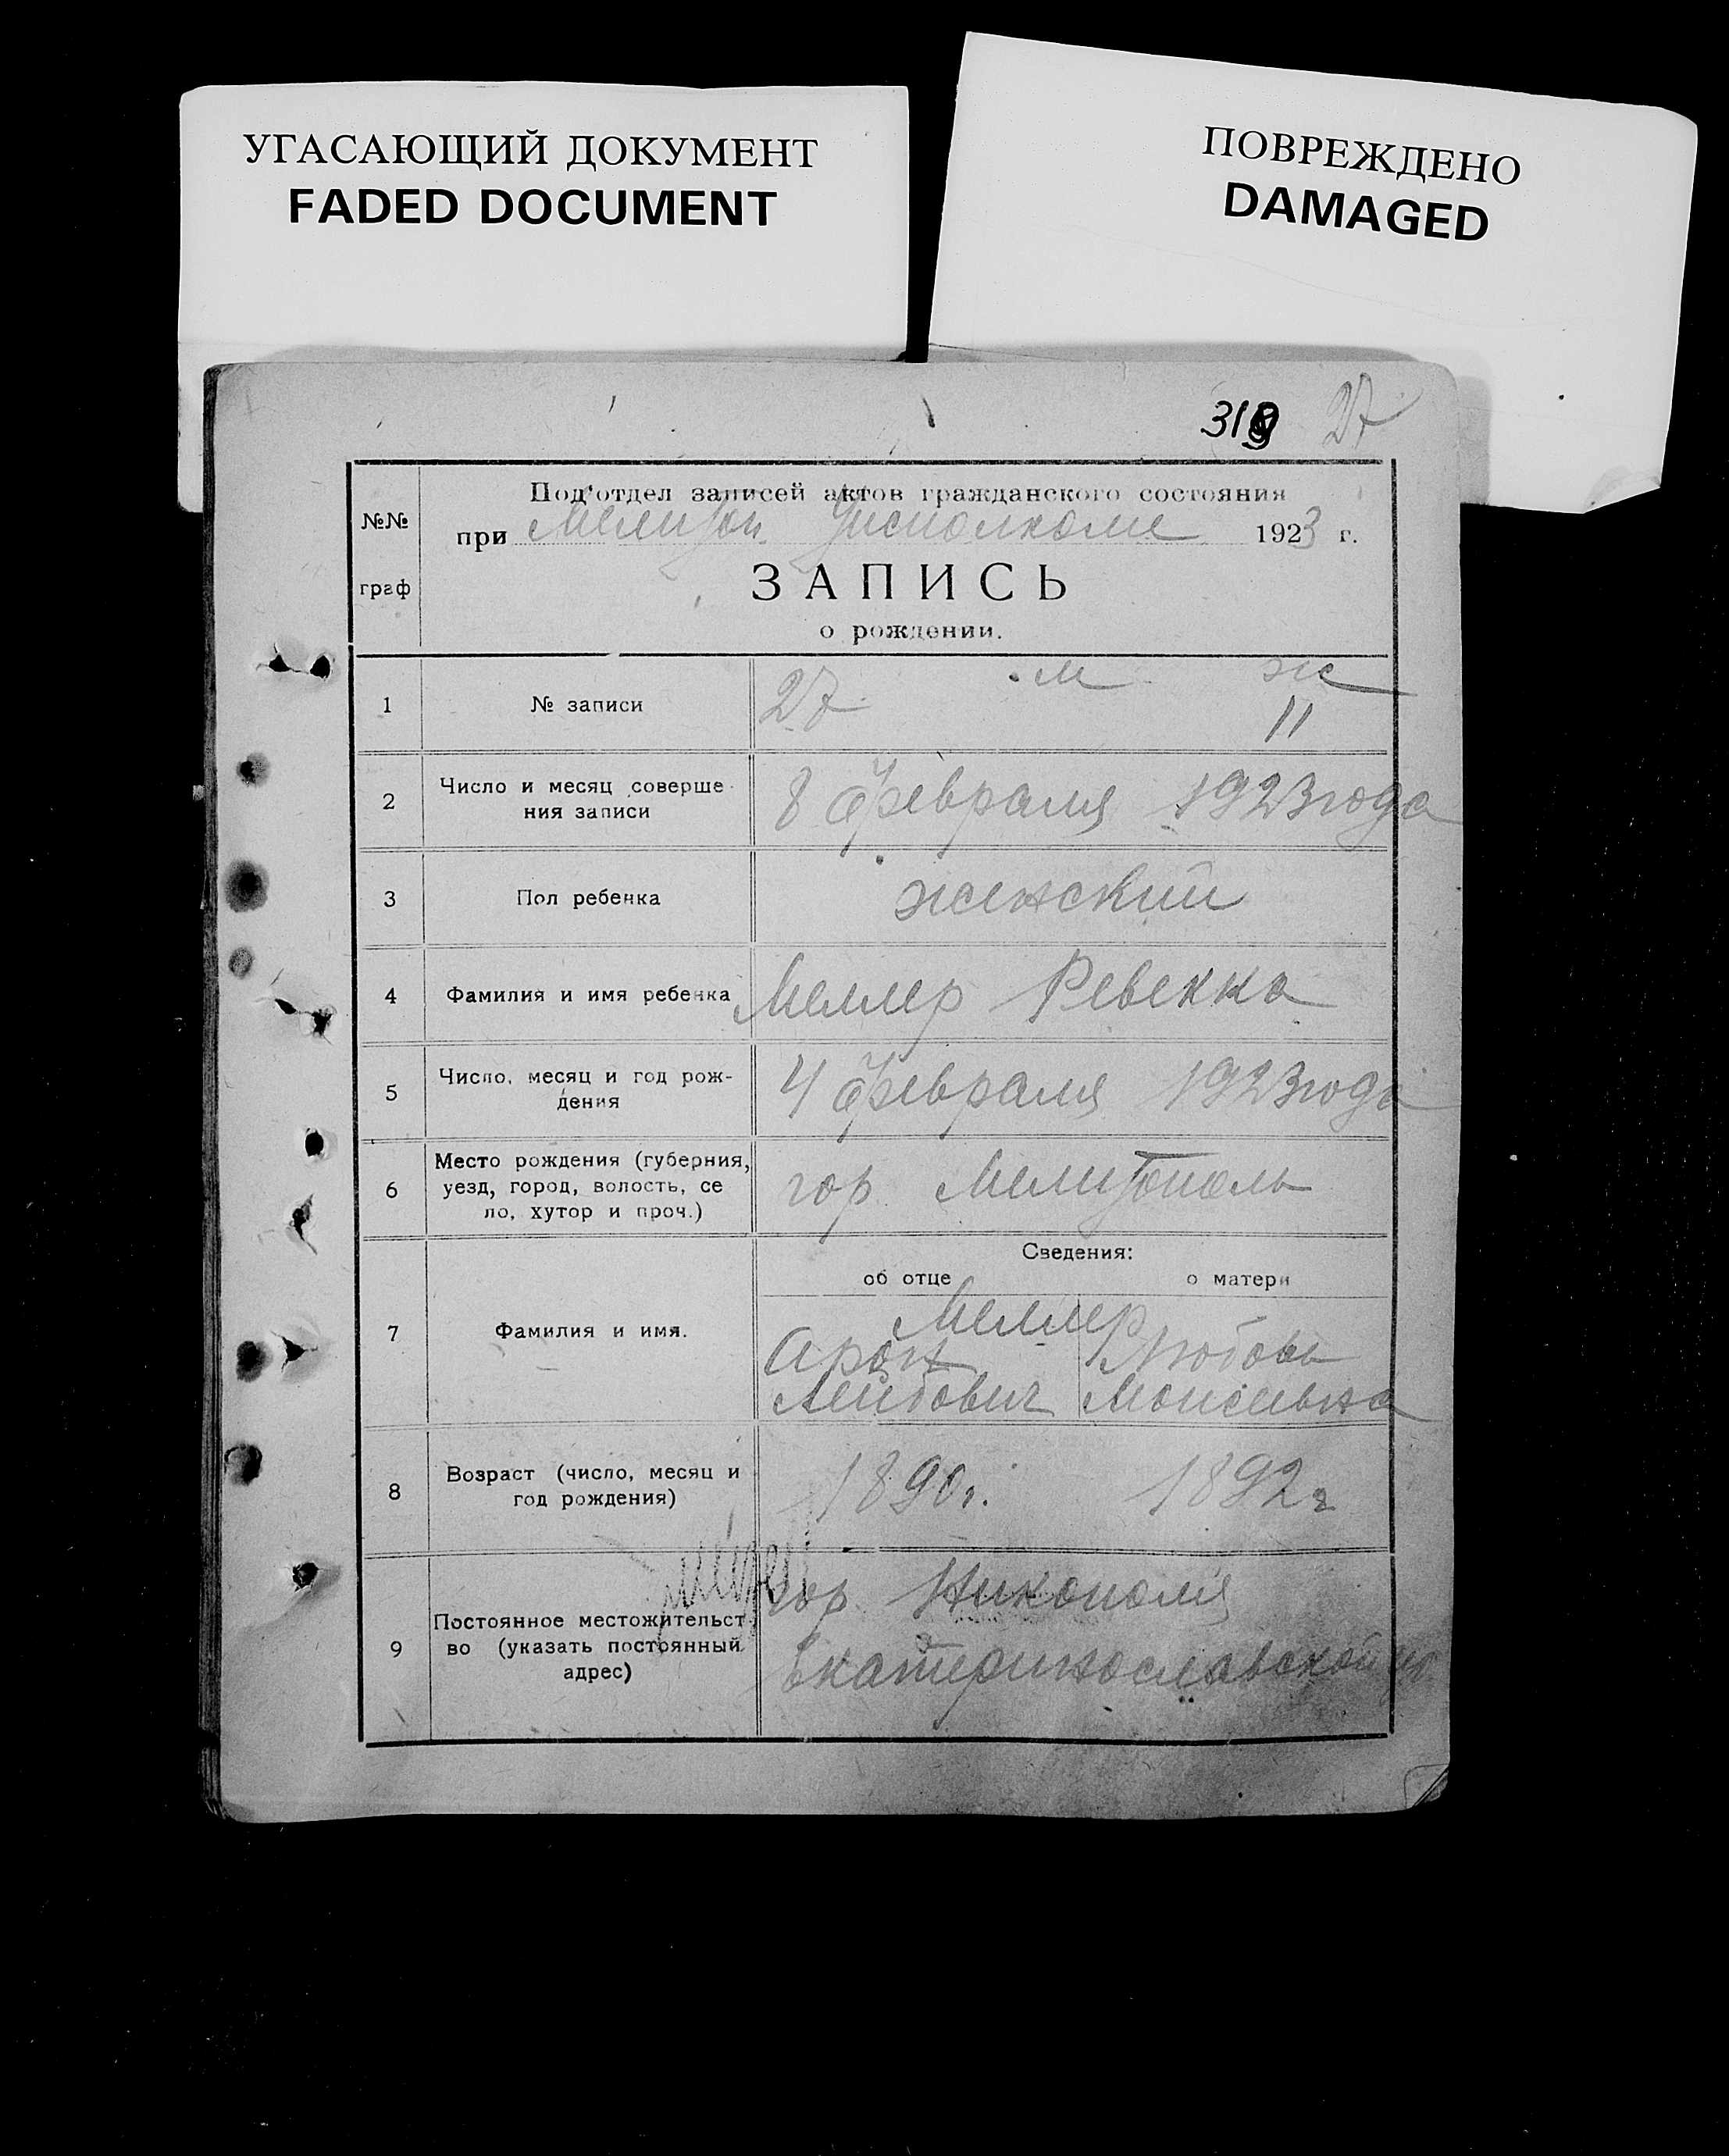 УГАСАЮЩИЙ ДОКУМЕНТ
FADED DOCUMENT
ПОВРЕЖДЕНО
DAMAGED
27
№№
граф
Под'отдел записей актов гражданского состояния
при Мелитоп. Уисполкоме 1923 г.
ЗАПИСЬ
о рождении.
м ж
1 № записи 27 11
2 Число и месяц соверше
ния записи
8 февраля 1923 года
3 Пол ребенка женский
4 Фамилия и имя ребенка Меллер Ревекка
5 Число, месяц и год рож-
дения
4 февраля 1923 года
6 Место рождения (губерния,
уезд, город, волость, се
ло, хутор и проч.)
гор. Мелитополь
Сведения:
об отце о матери
7 Фамилия и имя.
Меллер
Арон Любовь
Лейбович Моисеевна
8 Возраст (число, месяц и
год рождения)
1890 г. 1892 г
9 Постоянное местожительст
во (указать постоянный
адрес)
гор. Никополя
Екатеринославской